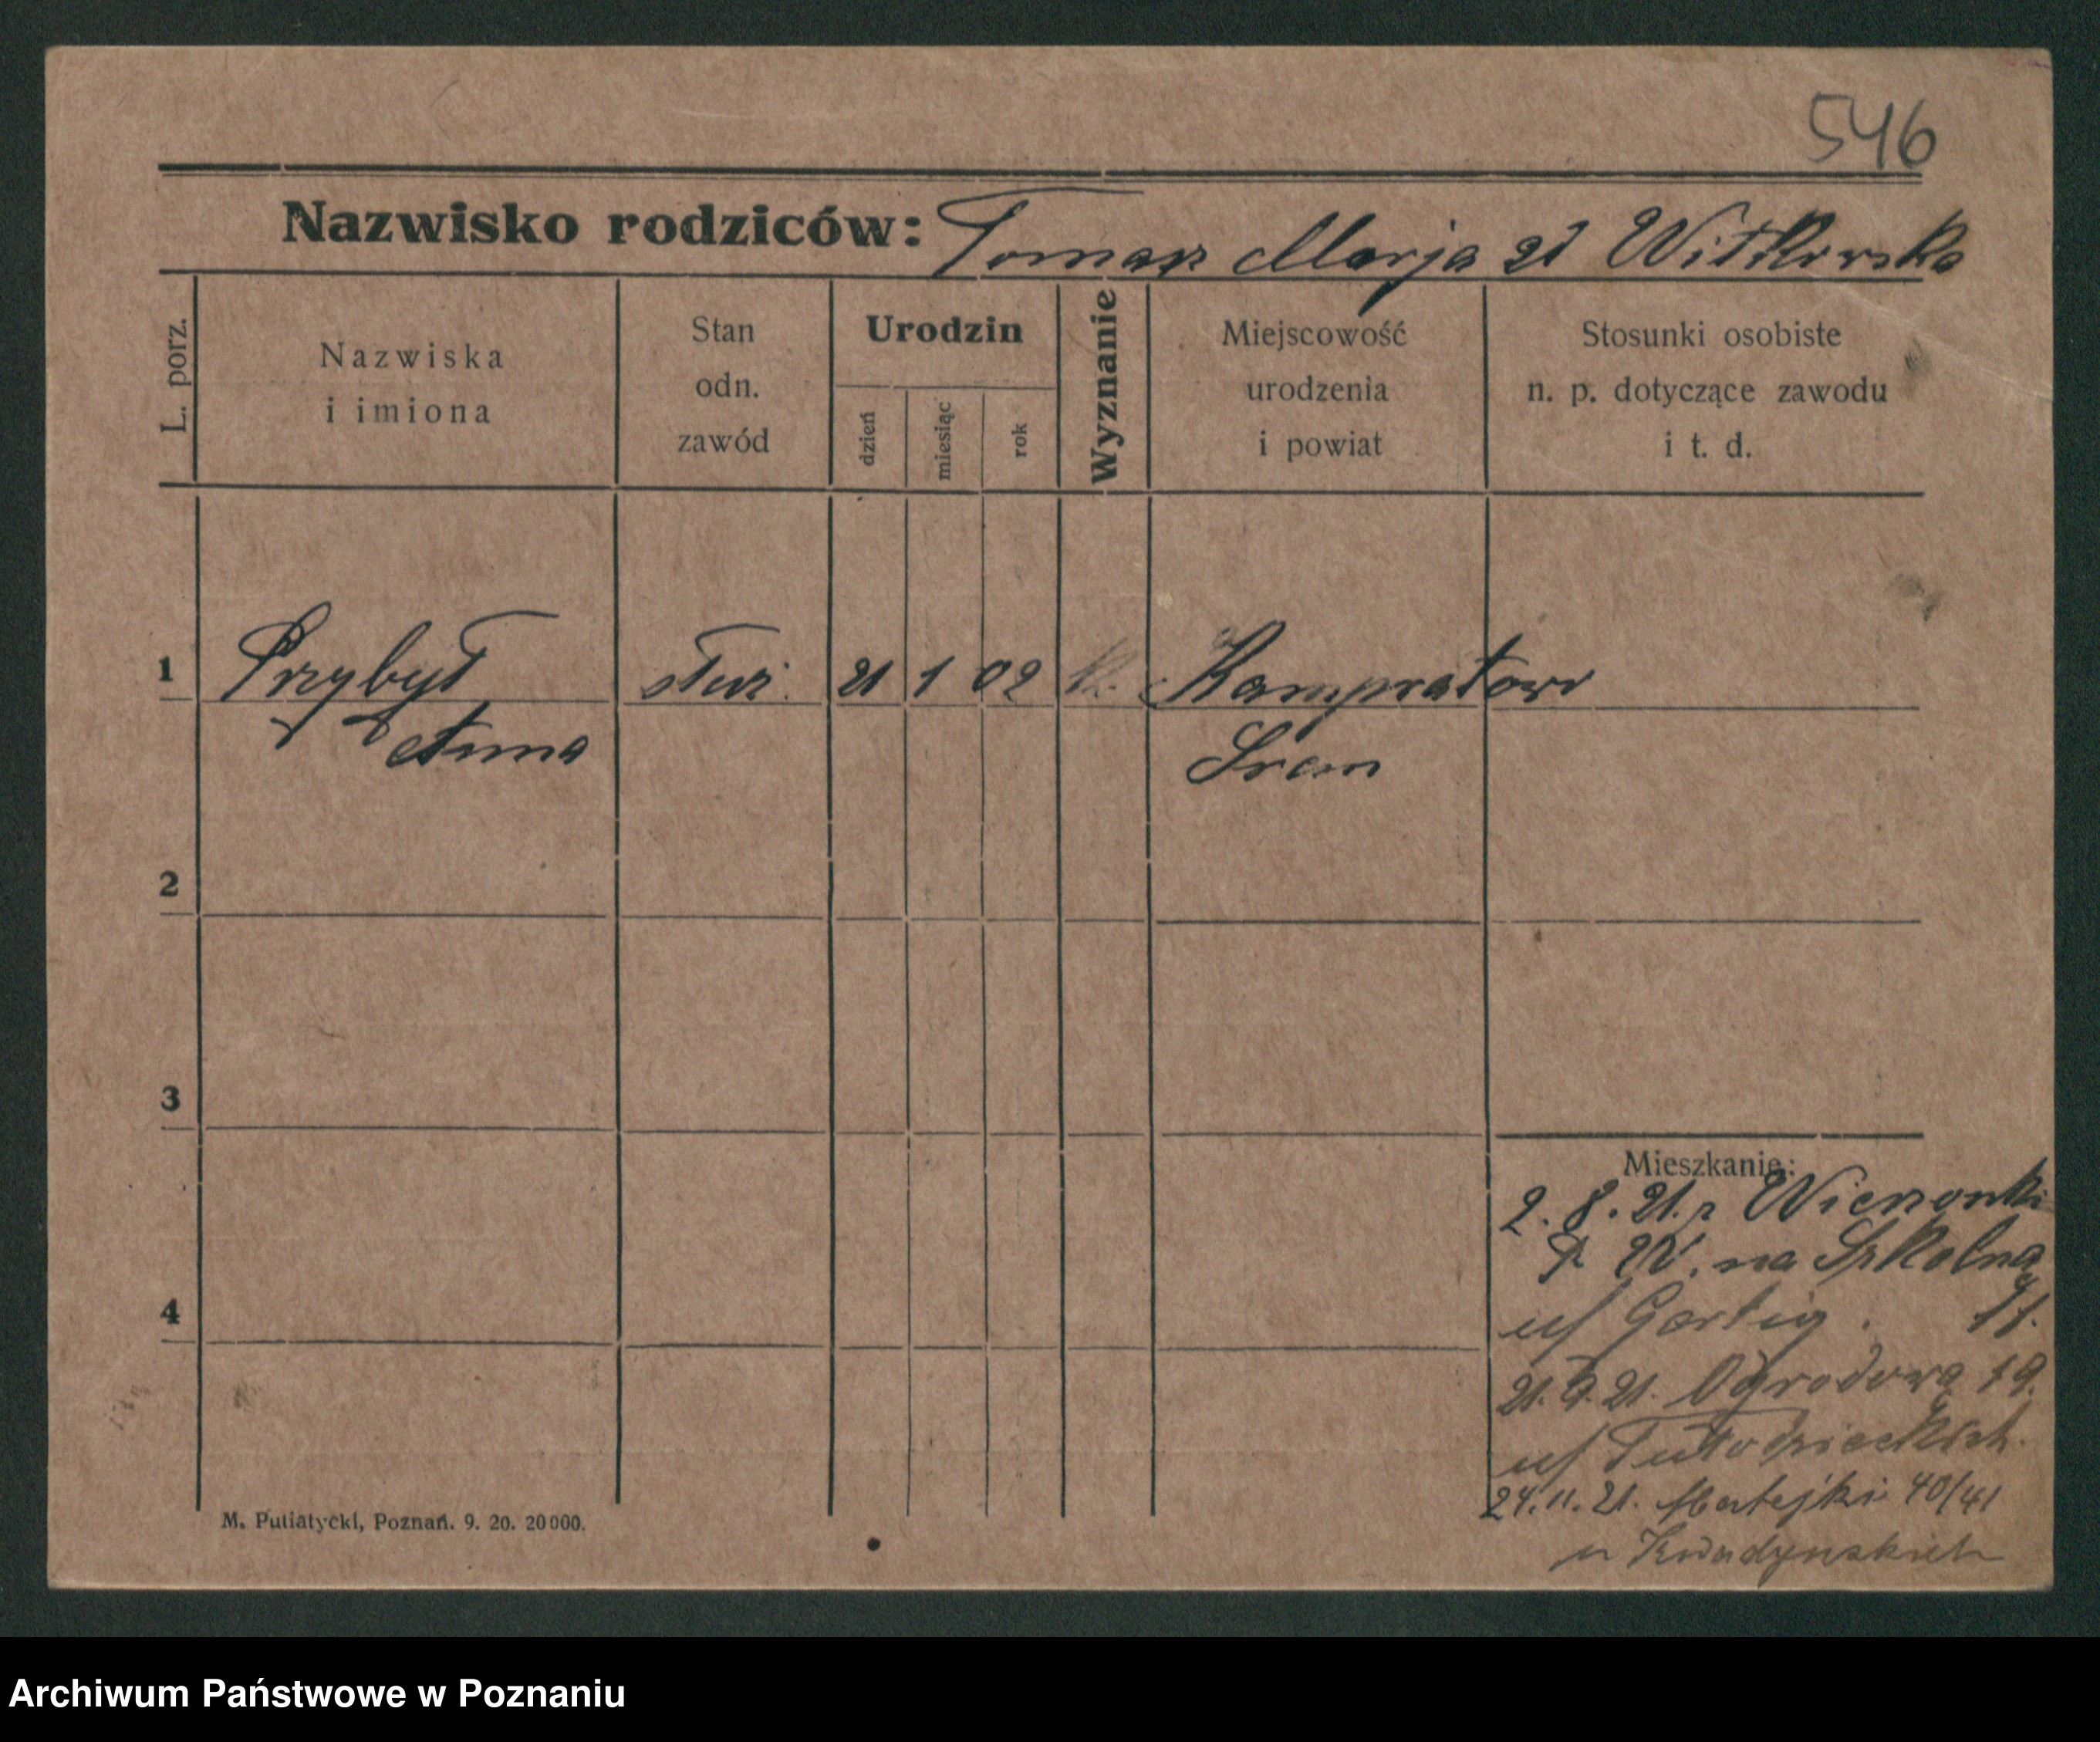 546
Nazwisko rodziców: Tomasz Marja zd Witkowska
L. porz.
Nazwiska
i imiona
Stan
odn.
zawód
Urodzin
dzień
miesiąc
rok
Wyznanie
Miejscowość
urodzenia
i powiat
Stosunki osobiste
n. p. dotyczące zawodu
i t. d.
1 Przybył służ. 21 1 02 k.
Anna Śrem
2
3
4
Mieszkanie:
2. 8. 21. z Wierzonki
P. W. na Szkolną
u/ Gartig. 11.
21. 9. 21. Ogrodowa 19.
24. 11. 21. Matejki 40/41
u
M. Putiatycki, Poznań. 9. 20. 20000.
Archiwum Państwowe w Poznaniu